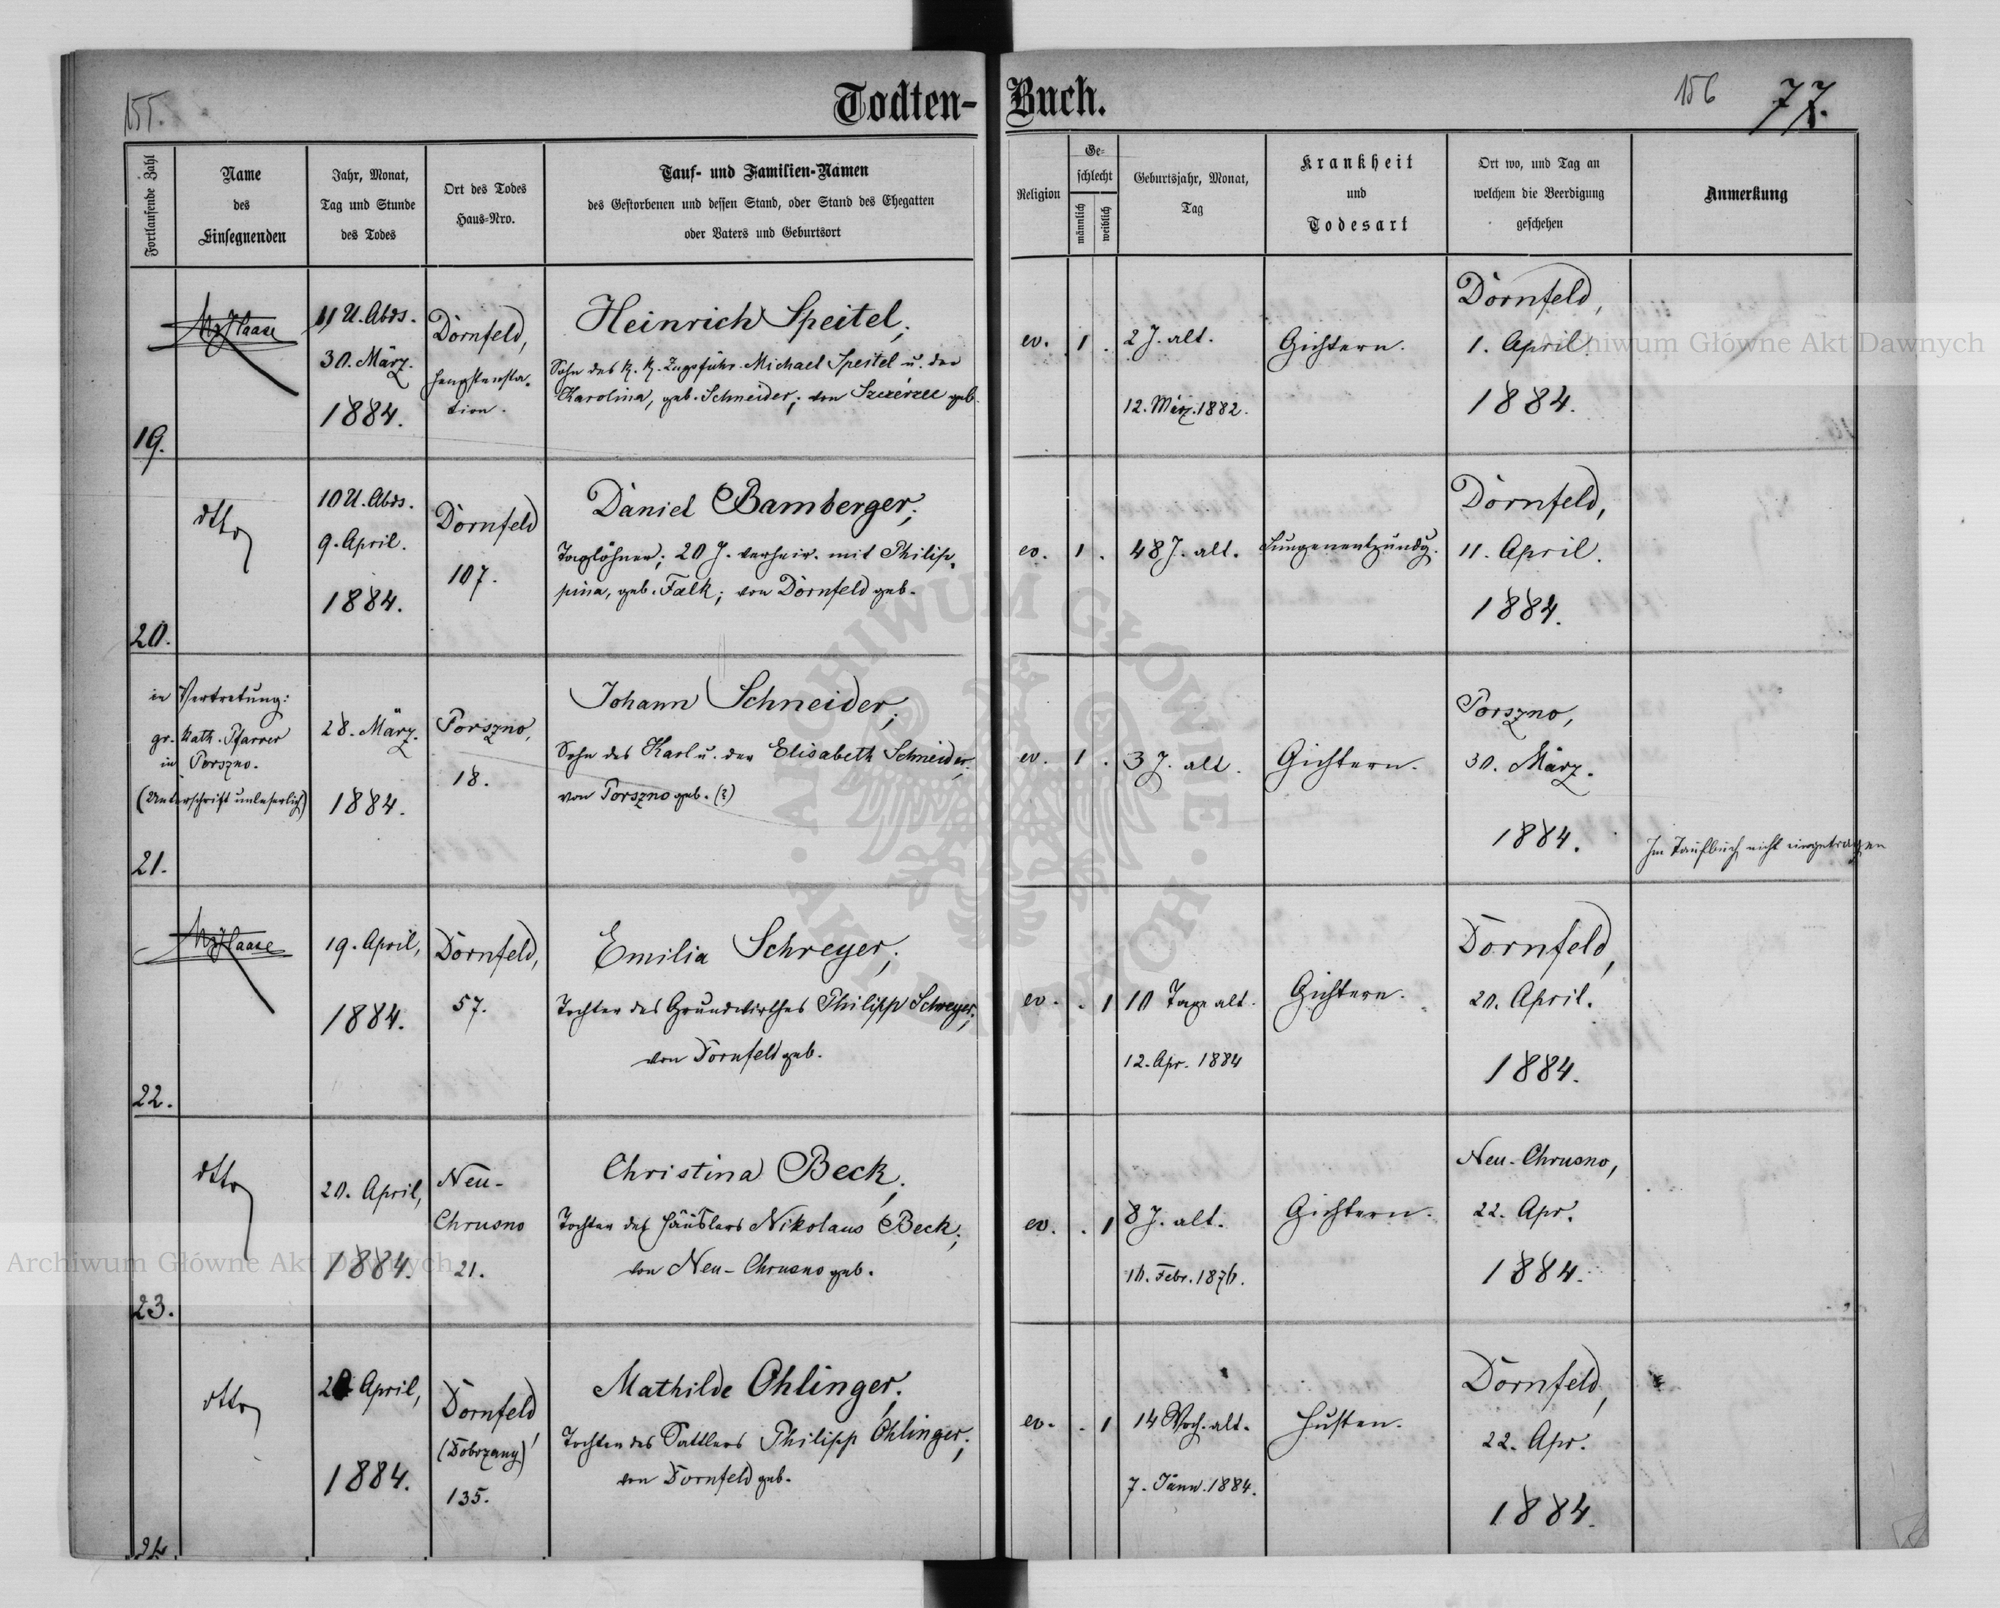 155.
Todten-Buch.
156
77.
Fortlaufende Zahl
Name
des
Einsegnenden
Jahr, Monat,
Tag und Stunde
des Todes
Ort des Todes
Haus-Nro.
Tauf- und Familien-Namen
des Gestorbenen und dessen Stand, oder Stand des Ehegatten
oder Vaters und Geburtsort
Religion
Ge-
schlecht
männlich
weiblich
Geburtsjahr, Monat,
Tag
Krankheit
und
Todesart
Ort wo, und Tag an
welchem die Beerdigung
geschehen
Anmerkung
19.
Haase
11 U. Abds.
30. März.
1884.
Dornfeld,
Hengstensta-
tion.
Heinrich Speitel;
Sohn des k. k. Zugsführ. Michael Speitel u. der
Karolina, geb. Schneider; von Szczérzec geb.
ev.
1
.
2 J. alt.
12. März. 1882.
Gichtern.
Dornfeld,
1. April.
1884.
20.
dtto
10 U. Abds.
9. April.
1884.
Dornfeld
107.
Daniel Bamberger;
Taglöhner; 20 J. verheir. mit Philip-
pina, geb. Falk; von Dornfeld geb.
ev.
1
.
48 J. alt.
Lungenentzündg.
Dornfeld,
11. April.
1884.
21.
in Vertretung:
gr. kath. Pfarrer
in Porszno.
(Unterschrift unleserlich)
28. März.
1884.
Porszno,
18.
Johann Schneider;
Sohn des Karl u. der Elisabeth Schneider;
von Porszno geb. (?)
ev.
1
.
3 J. alt.
Gichtern.
Porszno,
30. März.
1884.
Im Taufbuch nicht eingetragen
22.
Haase
19. April,
1884.
Dornfeld,
57.
Emilia Schreyer;
Tochter des Grundwirthes Philipp Schreyer;
von Dornfeld geb.
ev.
.
1
10 Tage alt.
12. Apr. 1884
Gichtern.
Dornfeld,
20. April.
1884.
23.
dtto
20. April,
1884.
Neu-
Chrusno
21.
Christina Beck;
Tochter des Häuslers Nikolaus Beck;
von Neu-Chrusno geb.
ev.
.
1
8 J. alt.
16. Febr. 1876.
Gichtern.
Neu-Chrusno,
22. Apr.
1884.
24
dtto
April,
1884.
Dornfeld,
(Dobrzany)
135.
Mathilde Ohlinger;
Tochter des Sattlers Philipp Ohlinger;
von Dornfeld geb.
ev.
.
1
14 Woch. alt.
7. Jänn. 1884.
Husten.
Dornfeld,
22. Apr.
1884.
Archiwum Główne Akt Dawnych
Archiwum Główne Akt Dawnych
ARCHIWUM GŁÓWNE AKT DAWNYCH